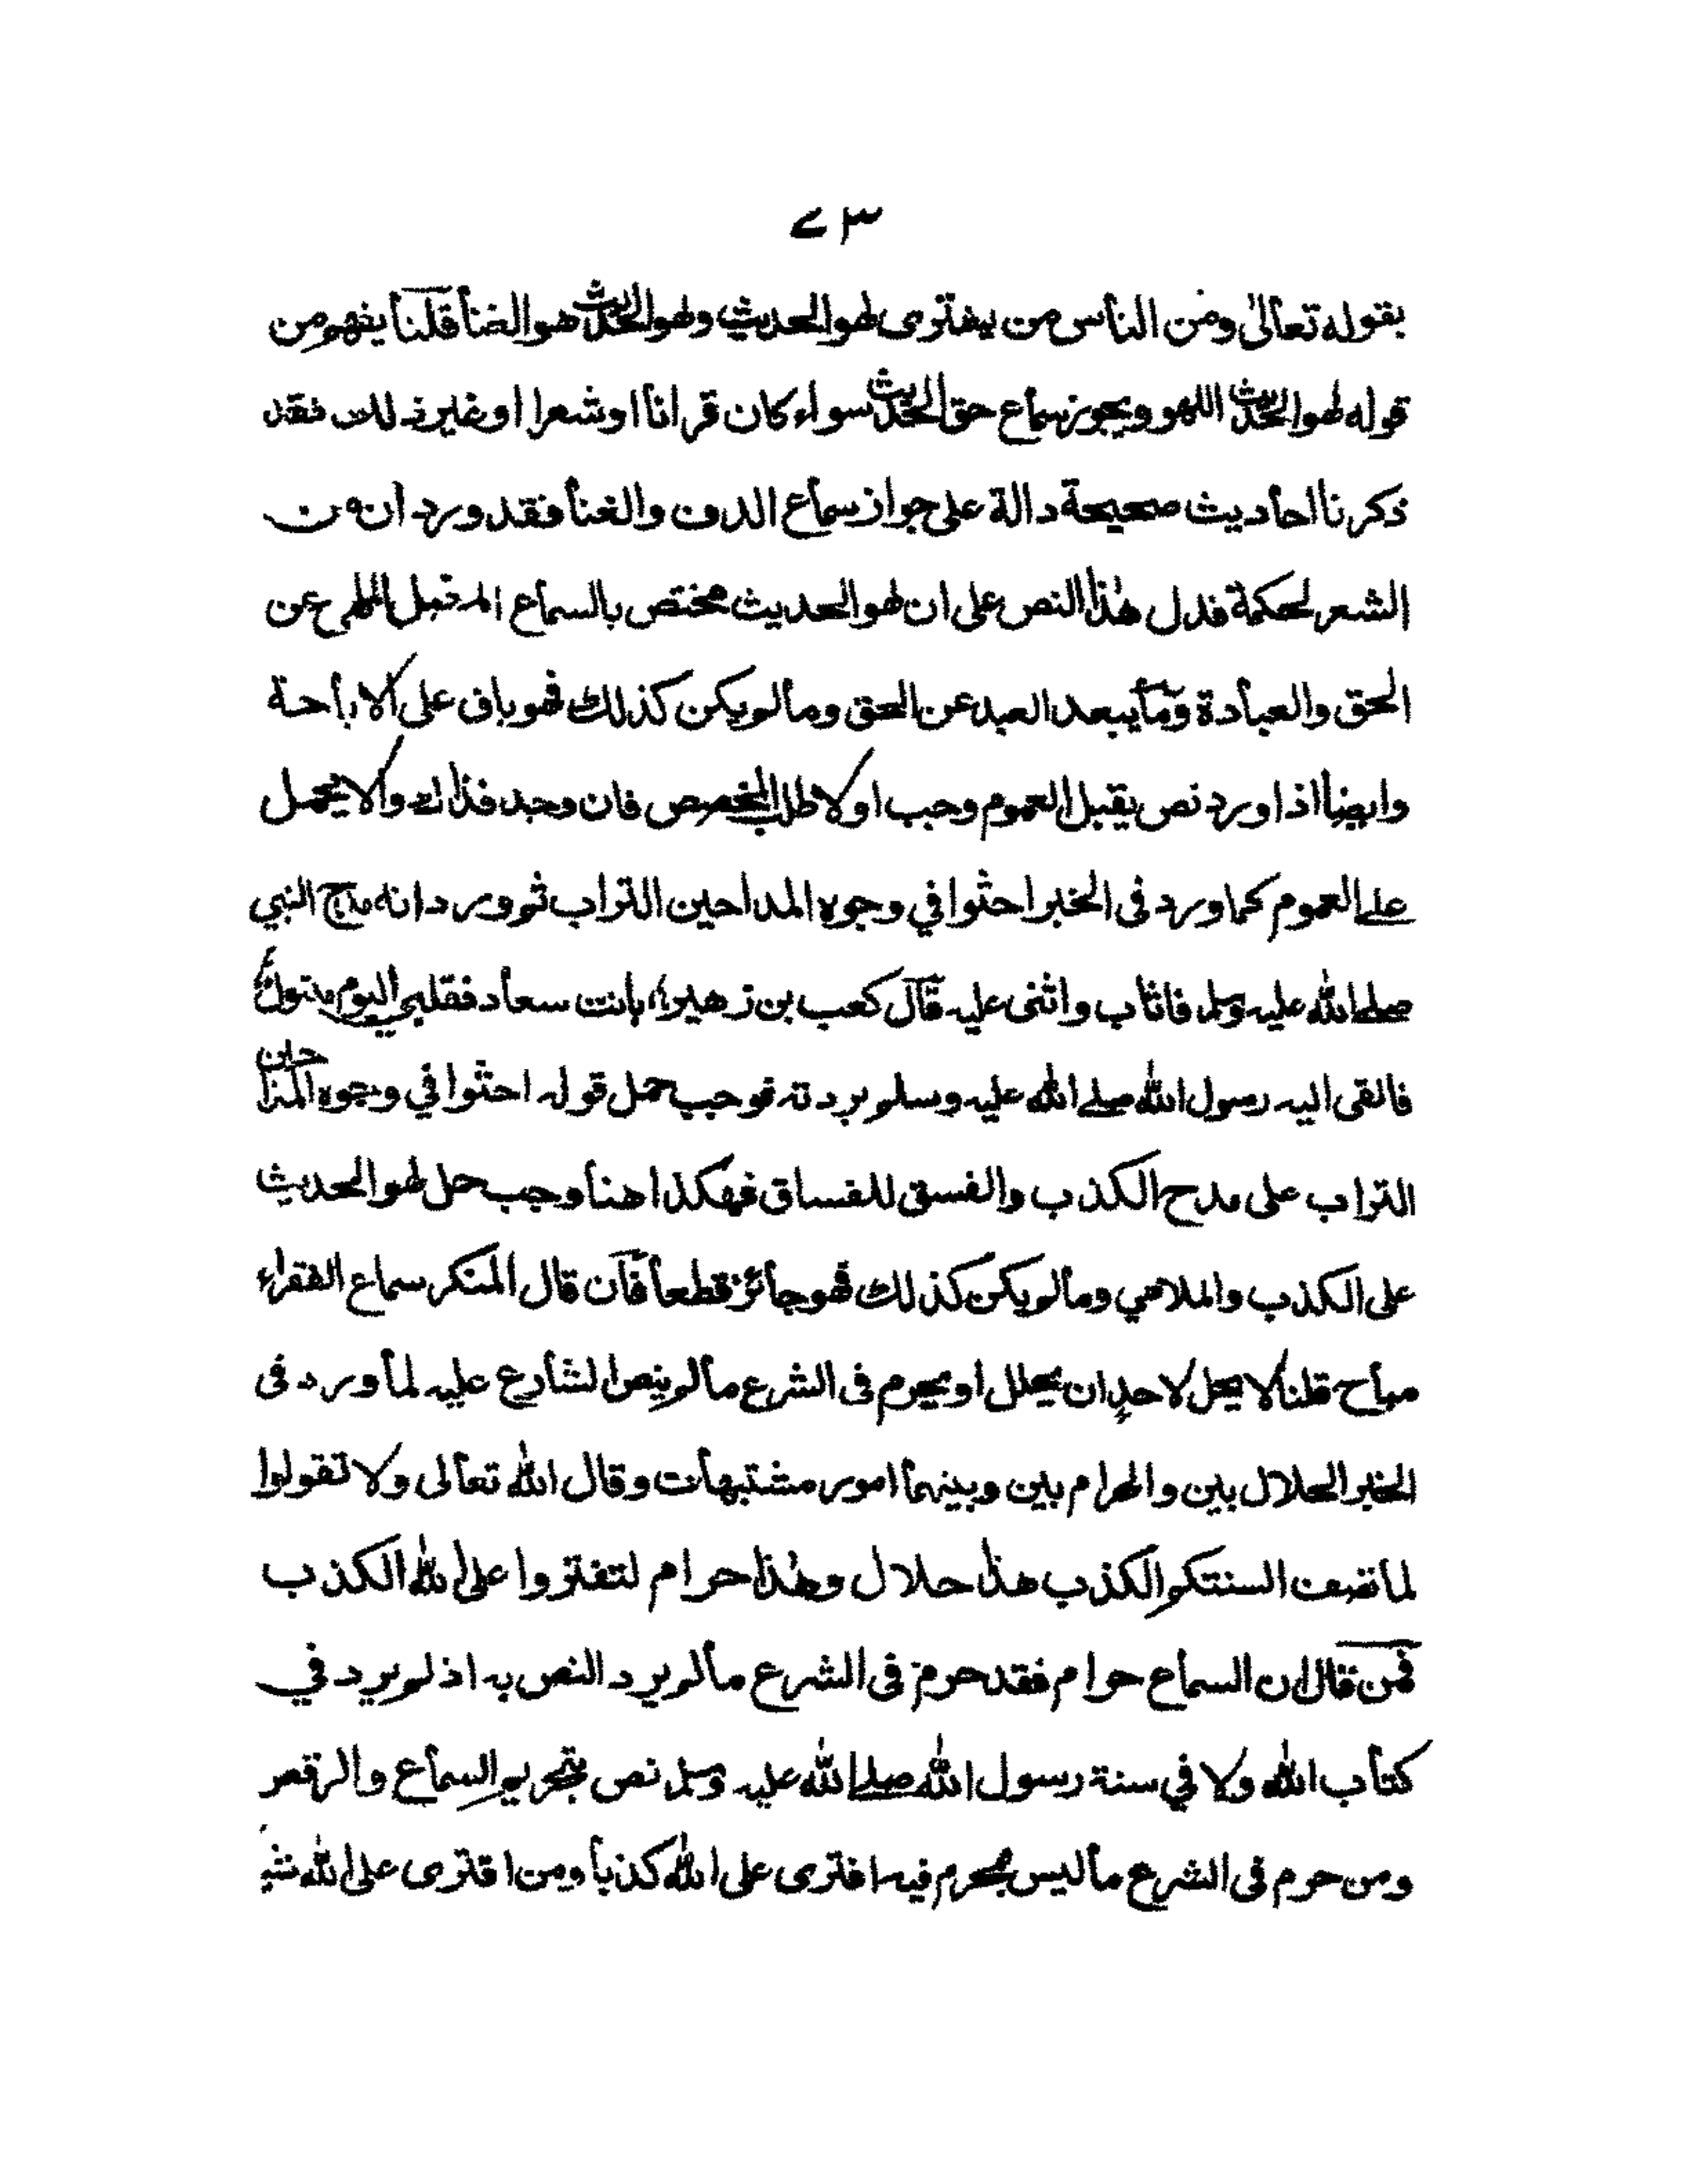 ٧٣
بقوله تعالى ومن الناس من يشترى لهو الحديث ولهو الحديث هو الغنا قلنا يفهم من
قوله لهو الحديث اللهو ويجوز سماع حق الحديث سواء كان قرانا او شعرا او غير ذلك فقد
ذكرنا احاديث صحيحة دالة على جواز سماع الدف والغنا فقد ورد ان من
الشعر لحكمة فدل هذا النص على ان لهو الحديث مختص بالسماع عن
الحق والعبادة وما يبعد العبد عن الحق وما لم يكن كذلك فهو باق على الاباحة
وايضا اذا ورد نص يقبل العموم وجب اولا طلب المخصص فان وجد فذاك والا يحمل
على العموم كما ورد فى الخبر احثوا في وجوه المداحين التراب ثم ورد انه مدح النبي
صلى الله عليه وسلم فاثاب واثنى عليه قال كعب بن زهير بانت سعاد فقلبى اليوم متبول
فالقى اليه رسول الله صلى الله عليه وسلم بردته فوجب حمل قوله احثوا في وجوه المداحين
التراب على مدح الكذب والفسق للفساق فهكذا هنا وجب حمل لهو الحديث
على الكذب والملاهي وما لم يكن كذلك فهو جائز قطعا فان قال المنكر سماع الفقراء
مباح قلنا لا يحل لاحد ان يحلل او يحرم فى الشرع ما لم ينص الشارع عليه لما ورد فى
الخبر الحلال بين والحرام بين وبينهما امور مشتبهات وقال الله تعالى ولا تقولوا
لما تصف السنتكم الكذب هذا حلال وهذا حرام لتفتروا على الله الكذب
فمن قال ان السماع حرام فقد حرم فى الشرع ما لم يرد النص به اذ لم يرد في
كتاب الله ولا في سنة رسول الله صلى الله عليه وسلم نص بتحريم السماع والرقص
ومن حرم فى الشرع ما ليس بمحرم فيه افترى على الله كذبا ومن افترى على الله